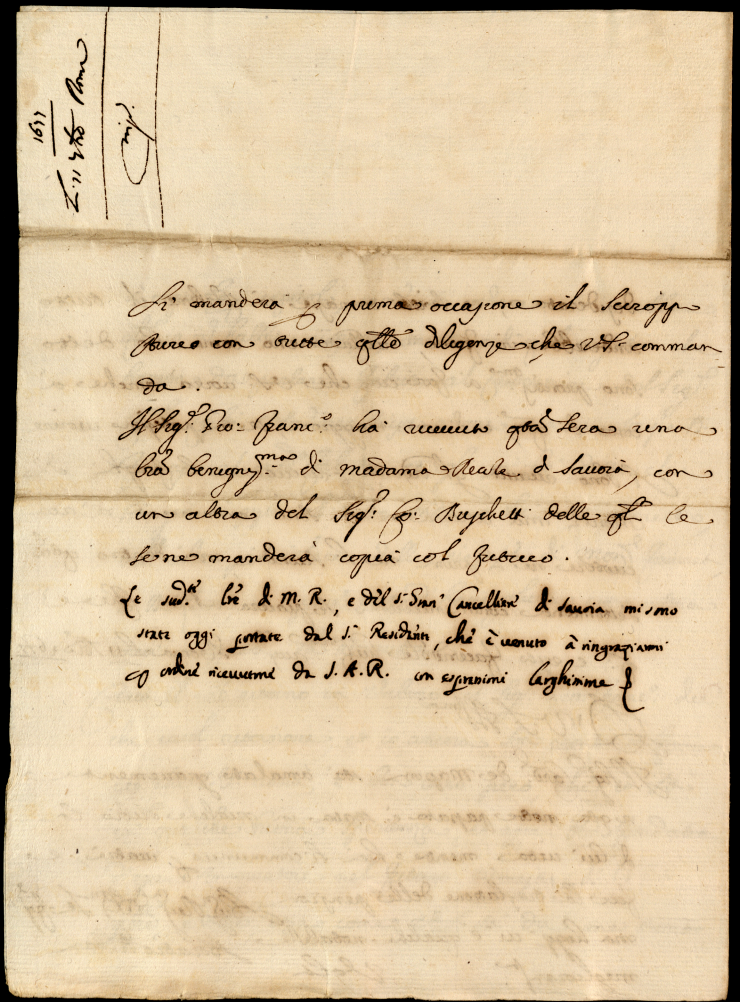 1677
Li 11 Roma
Si manderà p prima occasione il Sciropp
aureo con tutte qlle diligenze che V.S. comman
da.
Il Sig.r Gio: Franc.o ha riceuuto qsta sera una
lra benigniss.ma di Madama Reale di Sauoia, con
un altra del Sig.r Co: Buschetti delle qli le
se ne manderà copia col futuro.
Le sud.te lre di M. R., e del S.r Gran Cancelliere di Sauoia mi sono
state oggi portate dal S.r Residente, che è uenuto à ringraziarmi
p ordine riceuutone da S. A. R. con espressioni larghissime